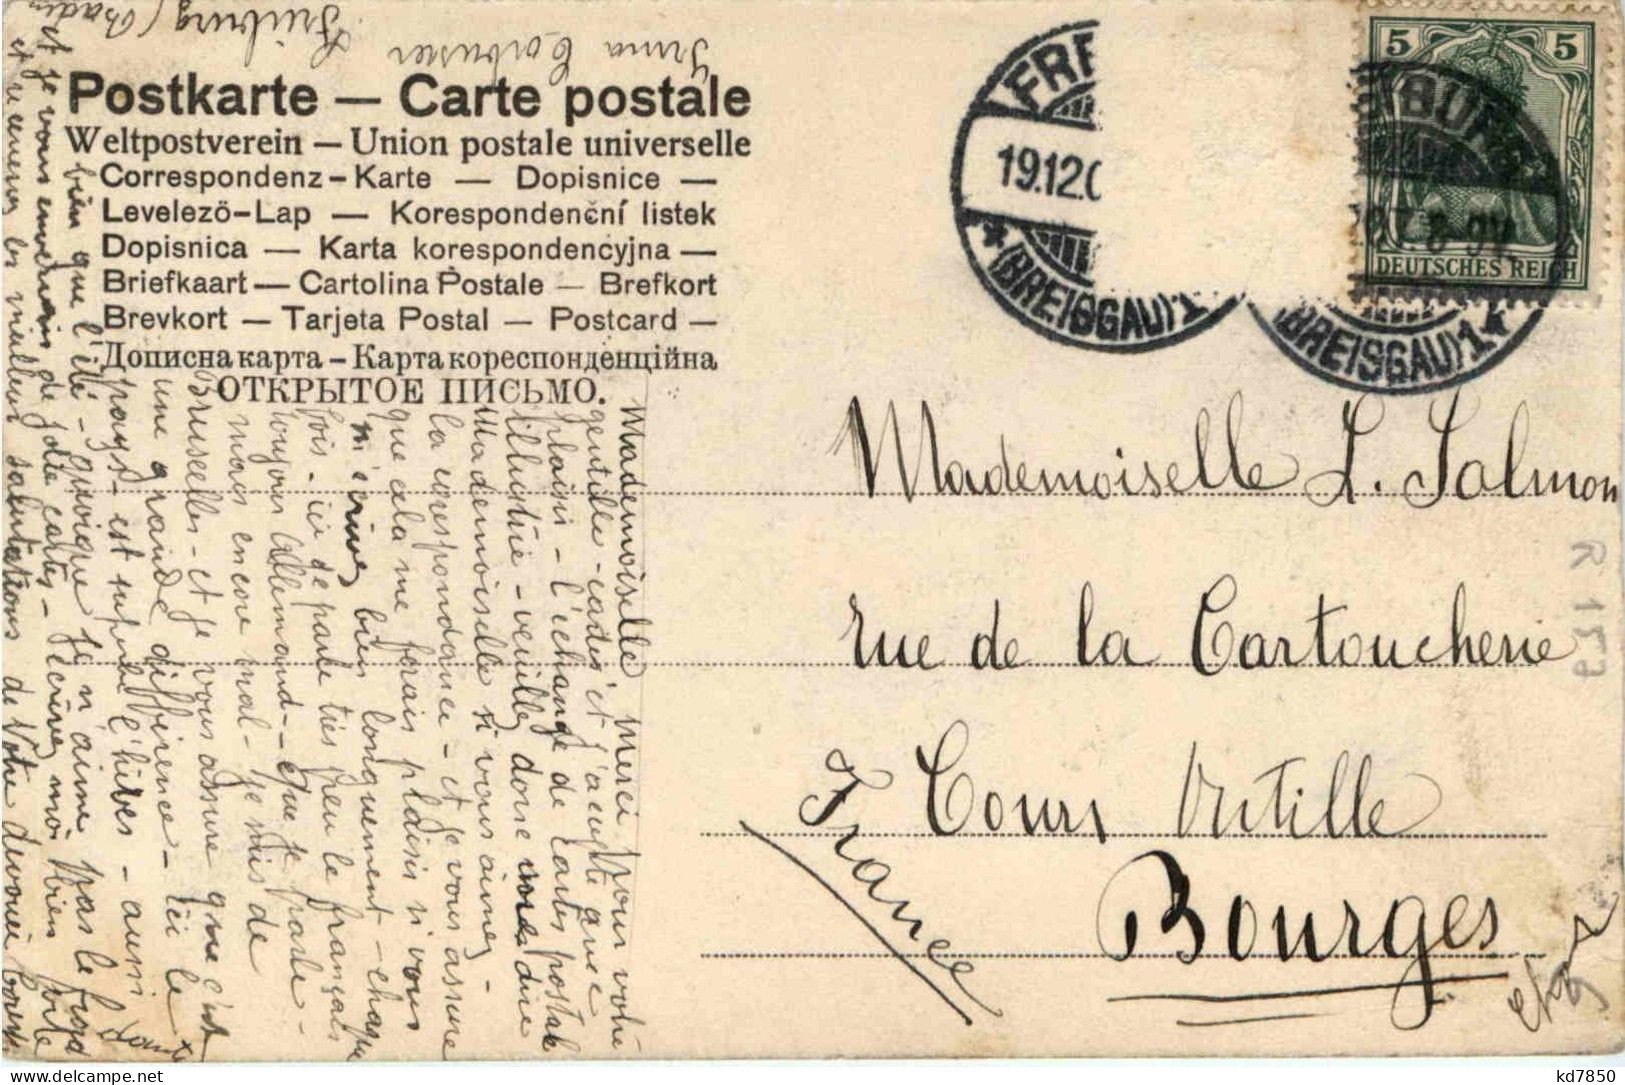 Irma Corbusier
Freiburg (Baden
Postkarte — Carte postale
Weltpostverein — Union postale universelle
Correspondenz-Karte — Dopisnice —
Levelező-Lap — Korespondenční listek
Dopisnica — Karta korespondencyjna —
Briefkaart — Cartolina Postale — Brefkort
Brevkort — Tarjeta Postal — Postcard —
Дописна карта — Карта кореспонденційна
ОТКРЫТОЕ ПИСЬМО.
19.12.0
(BREISGAU) 1
BURG
(BREISGAU) 1 *
5 5
DEUTSCHES REICH
Mademoiselle L. Salmon
rue de la Cartoucherie
Cours
Bourges
France
R 153
Mademoiselle Merci pour votre
gentille carte et j'accepte avec
plaisir - l'échange de cartes postale
illustrée - veuillez donc me dire
Mademoiselle si vous aimez -
la correspondance - et je vous assure
que cela me ferais plaisir si vous
m'écrivez bien longuement - chaque
fois - ici je parle très peu le français
toujours Allemand - que je parle -
mais encore mal - je suis de
Bruxelles - et je vous assure que c'est
une grande différence - ici le
pays - est superbe l'hiver - aussi
bien que l'été - quoique je n'aime pas le froid
et je vous enverrais de jolie cartes - écrivez moi bien vite
et recevez les meilleur salutations de Votre
kd7850